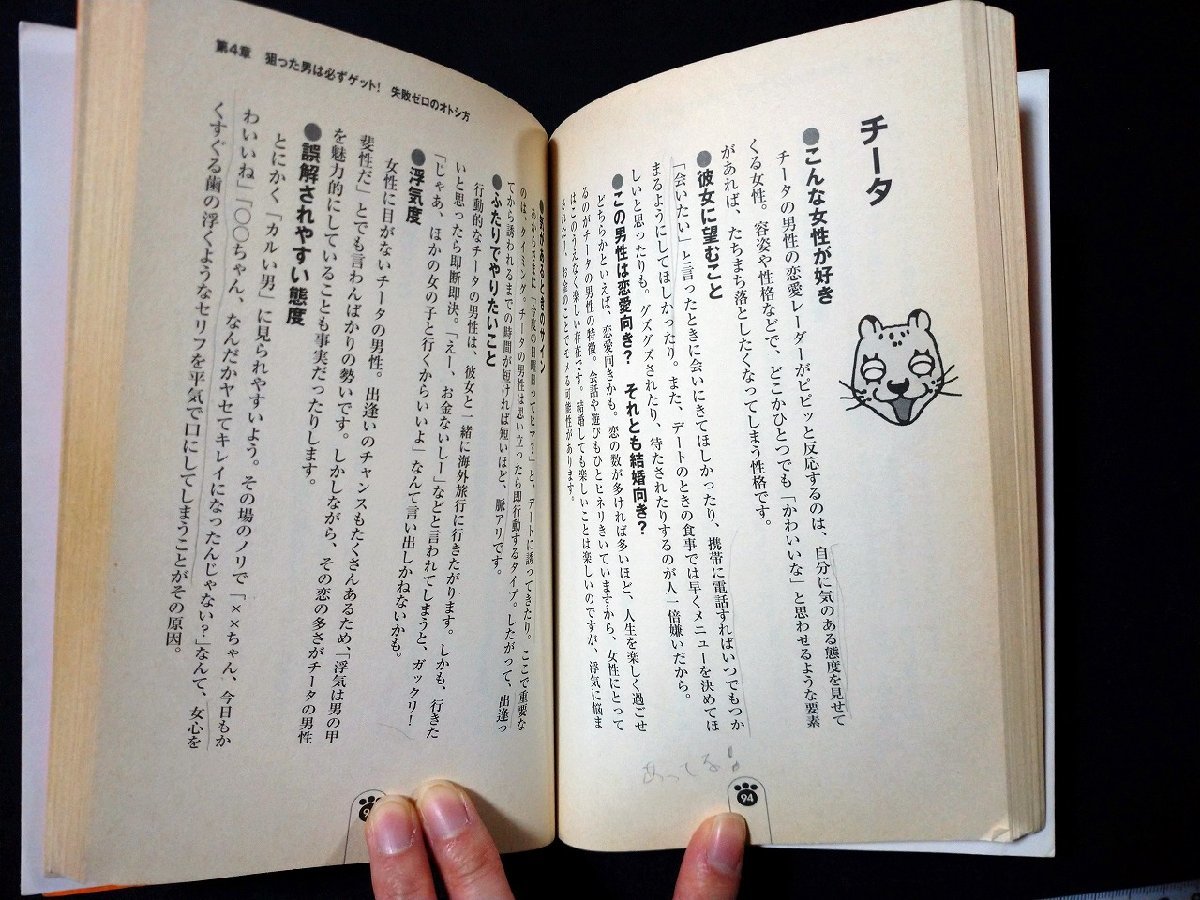 チータ
●こんな女性が好き
チータの男性の恋愛レーダーがピピッと反応するのは、自分に気のある態度を見せて
くる女性。容姿や性格などで、どこかひとつでも「かわいいな」と思わせるような要素
があれば、たちまち落としたくなってしまう性格です。
●彼女に望むこと
「会いたい」と言ったときに会いにきてほしかったり、携帯に電話すればいつでもつか
まるようにしてほしかったり。また、デートのときの食事では早くメニューを決めてほ
しいと思ったりも。グズグズされたり、待たされたりするのが人一倍嫌いだから。
●この男性は恋愛向き? それとも結婚向き?
どちらかといえば、恋愛向きかも。恋の数が多ければ多いほど、人生を楽しく過ごせ
るのがチータの男性の特徴。会話や遊びもひとヒネリきいていますから、女性にとって
はこのうえなく楽しい存在です。結婚しても楽しいことは楽しいのですが、浮気に悩ま
お金のことでモメる可能性があります。
あってる!
94
第4章 狙った男は必ずゲット! 失敗ゼロのオトシ方
●気があるときのサイン
と、デートに誘ってきたり。ここで重要な
のは、タイミング。チータの男性は思い立ったら即行動するタイプ。したがって、出逢っ
てから誘われるまでの時間が短ければ短いほど、脈アリです。
●ふたりでやりたいこと
行動的なチータの男性は、彼女と一緒に海外旅行に行きたがります。しかも、行きた
いと思ったら即断即決。「えー、お金ないしー」などと言われてしまうと、ガックリ!
「じゃあ、ほかの女の子と行くからいいよ」なんて言い出しかねないかも。
●浮気度
女性に目がないチータの男性。出逢いのチャンスもたくさんあるため、「浮気は男の甲
斐性だ」とでも言わんばかりの勢いです。しかしながら、その恋の多さがチータの男性
を魅力的にしていることも事実だったりします。
●誤解されやすい態度
とにかく「カルい男」に見られやすいよう。その場のノリで「××ちゃん、今日もか
わいいね」「〇〇ちゃん、なんだかヤセてキレイになったんじゃない?」なんて、女心を
くすぐる歯の浮くようなセリフを平気で口にしてしまうことがその原因。